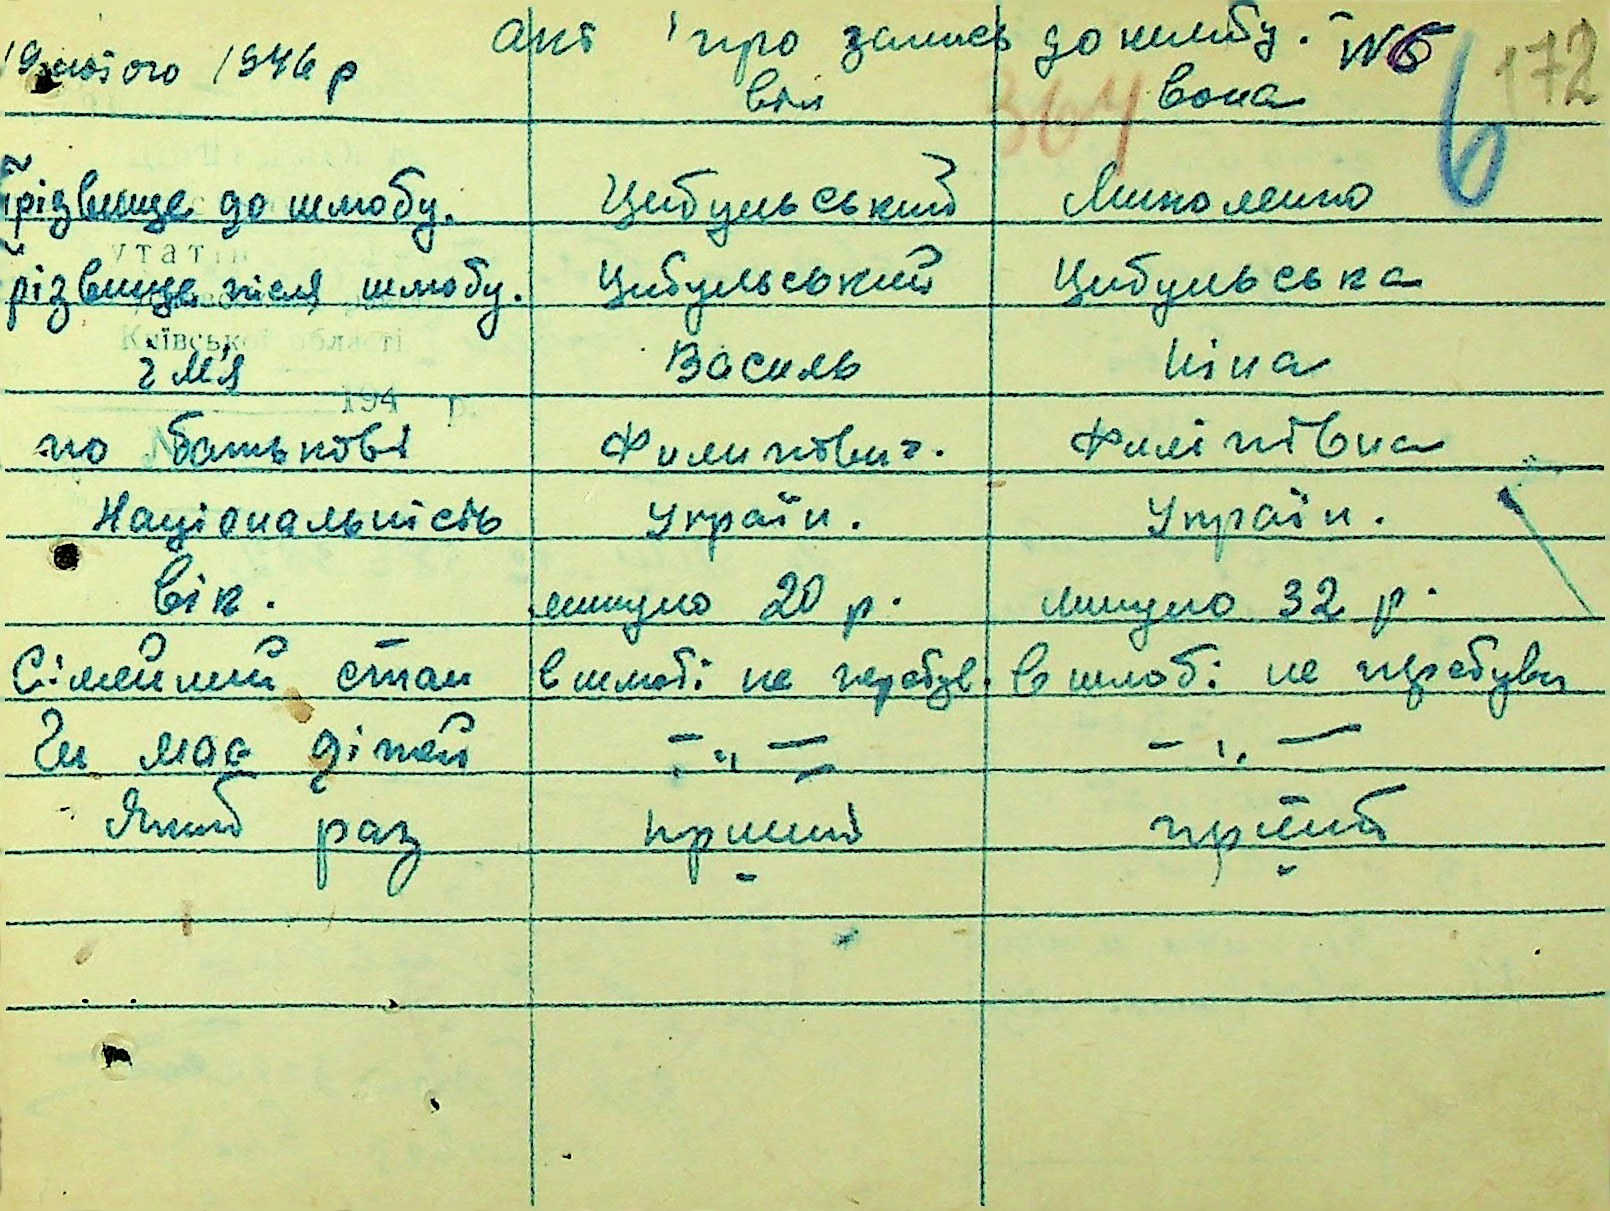 Акт про запись до шлюбу. №6 6 172
19 лютого 1946 р
він 364 вона
Прізвище до шлюбу. Цибульський Миколенко
Прізвище після шлюбу. Цибульський Цибульська
утатів
Київської області
імя Василь Ніна
194 р.
по батькові Филипович. Филіпівна
Національність Україн. Україн.
Вік. минуло 20 р. минуло 32 р.
Сімейний стан в шлюбі не перебув. в шлюбі не перебува
Чи має дітей —„— —„—
Який раз перший перший